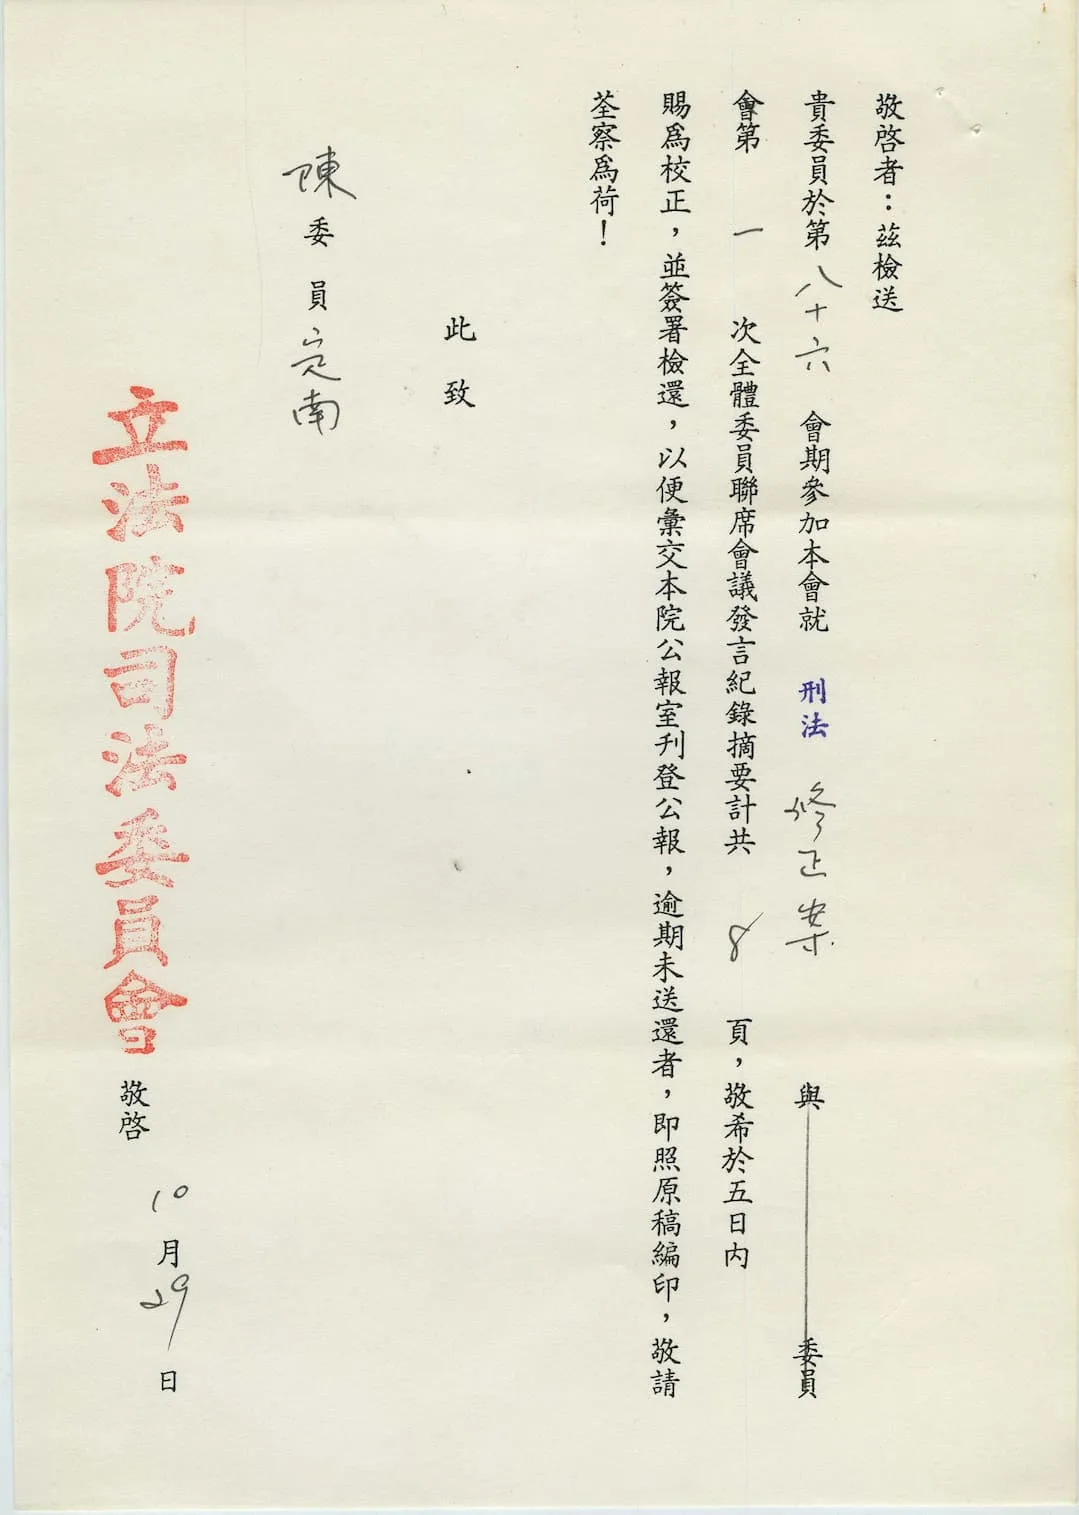 敬啓者：茲檢送
貴委員於第八十六會期參加本會就刑法修正案與委員
會第一次全體委員聯席會議發言紀錄摘要計共8頁，敬希於五日內
賜爲校正，並簽署檢還，以便彙交本院公報室刊登公報，逾期未送還者，即照原稿編印，敬請
荃察爲荷！
此致
陳委員定南
立法院司法委員會敬啓
10月29日